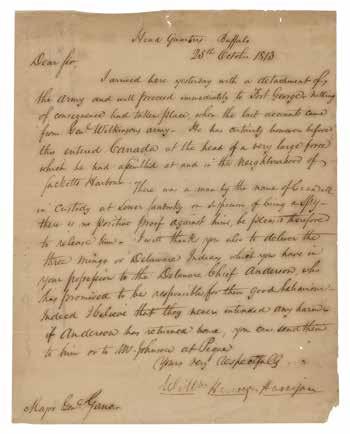 Head Quarters Buffalo
25th October 1813
Dear Sir,
I arrived here yesterday with a detachment of
the Army and will proceed immediately to Fort George. nothing
of consequence had taken place, when the last accounts came
from Genl. Wilkinsons army. He has certainly however before
this entered Canada at the head of a very large force
which he had assembled at and in the neighbourhood of
Sacketts Harbour. There was a man by the name of
in Custody at Lower Sandusky on suspicion of being a Spy
there is no positive proof against him, be pleased therefore
to release him. I will thank you also to deliver the
three Mingo or Delaware Indians which you have in
your possession to the Delaware Chief Anderson, who
has promised to be responsible for their good behaviour.
Indeed I believe that they never intended any harm
if Anderson has returned home, you can send them
to him or to Mr. Johnson at Piqua
Yours very respectfully
Willm Henry Harrison
Major Genl. Gano.